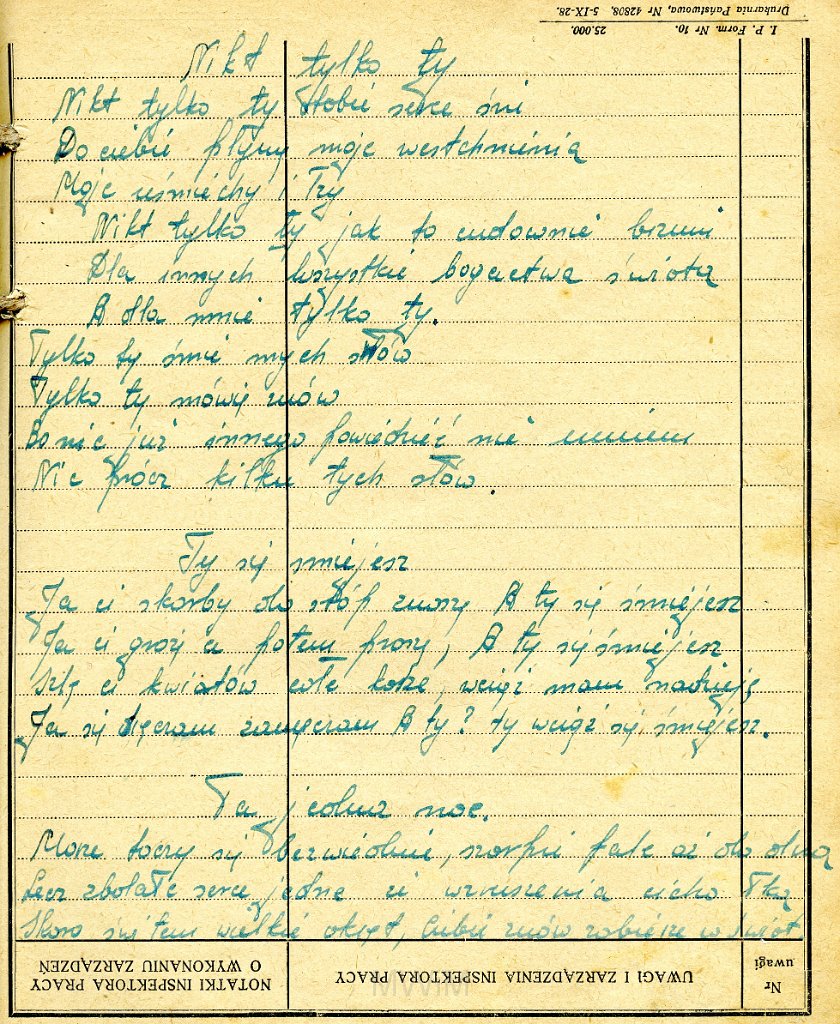 I. P. Form. Nr 10. 25.000.
Drukarnia Państwowa, Nr 42808, 5-IX-28.
Nikt tylko ty
Nikt tylko ty o tobie serce śni
Do ciebie płyną moje westchnienia
Moje uśmiechy i łzy
Nikt tylko ty jak to cudownie brzmi
Dla innych wszystkie bogactwa świata
A dla mnie tylko ty.
Tylko ty śmie mych słów
Tylko ty mówię znów
Bo nic już innego powiedzieć nie umiem
Nic prócz kilku tych słów.
Ty się śmiejesz
Ja ci skarby do stóp znoszę A ty się śmiejesz
Ja ci grożę a potem proszę, A ty się śmiejesz
Ślę ci kwiatów całe kosze, wciąż mam nadzieję
Ja się dręczam zamęczam A ty? ty wciąż się śmiejesz.
Ta jedna noc.
Morze toczy się bezwiednie, szarpie fale aż do dna
Lecz zbolałe serce jedne ci wzruszenia cicho łka
Skoro świtem wielki okręt, Ciebie znów zabierze w świat
NOTATKI INSPEKTORA PRACY O WYKONANIU ZARZĄDZEŃ
UWAGI I ZARZĄDZENIA INSPEKTORA PRACY
Nr uwagi
MWM